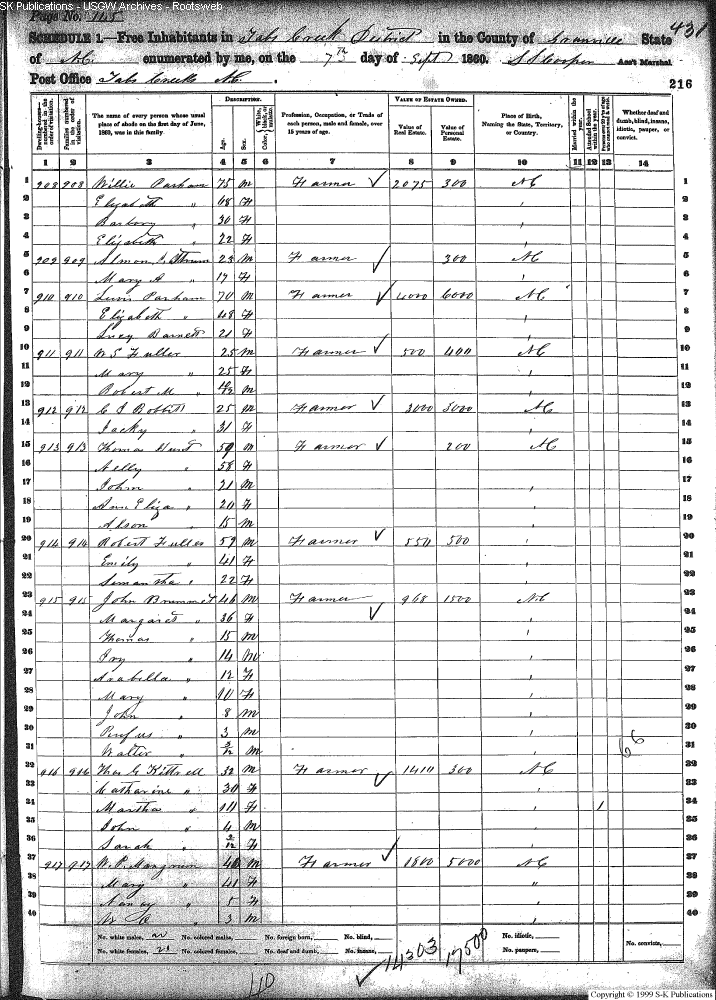 SK Publications - USGW Archives - Rootsweb
Page No. 145
431
SCHEDULE 1.—Free Inhabitants in Tabs Creek District in the County of Granville State
of N.C. enumerated by me, on the 7th day of Sept 1860. Ass't Marshal
Post Office Tabs Creek N.C.
216
Dwelling-houses—numbered in the order of visitation.
Families numbered in the order of visitation.
The name of every person whose usual place of abode on the first day of June, 1860, was in this family.
DESCRIPTION.
Age.
Sex.
Color, White, black, or mulatto.
Profession, Occupation, or Trade of each person, male and female, over 15 years of age.
VALUE OF ESTATE OWNED.
Value of Real Estate.
Value of Personal Estate.
Place of Birth, Naming the State, Territory, or Country.
Married within the year.
Attended School within the year.
Whether deaf and dumb, blind, insane, idiotic, pauper, or convict.
1 2 3 4 5 6 7 8 9 10 11 12 13 14
1 908 908 Willie Parham 75 M Farmer 2075 300 NC 1
2 Elizabeth " 68 F 2
3 Barbary " 30 F 3
4 Elizabeth " 22 F 4
5 909 909 M Farmer 300 NC 5
6 Mary A " 17 F 6
7 910 910 Lewis Parham 70 M Farmer 4000 6000 NC 7
8 Elizabeth " 48 F 8
9 Lucy Barnett 21 F 9
10 911 911 W. S. Fuller 25 M Farmer 500 400 NC 10
11 Mary " 25 F 11
12 Robert M " M 12
13 912 912 C I Bobbitt 25 M Farmer 3000 NC 13
14 Jacky " 31 F 14
15 913 913 Thomas Hunt 59 M Farmer 200 NC 15
16 Nelly " 58 F 16
17 John " 21 M 17
18 Ann Eliza " 20 F 18
19 Alson " 15 M 19
20 914 914 Robert Fuller 59 M Farmer 550 500 20
21 Emily " 41 F 21
22 Simantha " 22 F 22
23 915 915 John Brummet 46 M Farmer 968 1500 NC 23
24 Margaret " 36 F 24
25 Thomas " 15 M 25
26 Ivy " 14 M 26
27 Arabella " 12 F 27
28 Mary " 10 F 28
29 John " 8 M 29
30 Rufus " 3 M 30
31 Walter " M 31
66
32 916 916 Thos G Kittrell 32 M Farmer 1410 300 NC 32
33 Catharine " 30 F 33
34 Martha " F 1 34
35 John " 4 M 35
36 Sarah " F 36
37 917 917 W. P. Mangum 40 M Farmer 1800 5000 NC 37
38 Mary " 41 F " 38
39 Nancy " 5 F 39
40 " 3 M 40
No. white males, 20 No. colored males, No. foreign born, No. blind, No. idiotic,
No. white females, No. colored females, No. deaf and dumb, No. insane, No. paupers, No. convicts,
14303 17500
40
Copyright © 1999 S-K Publications